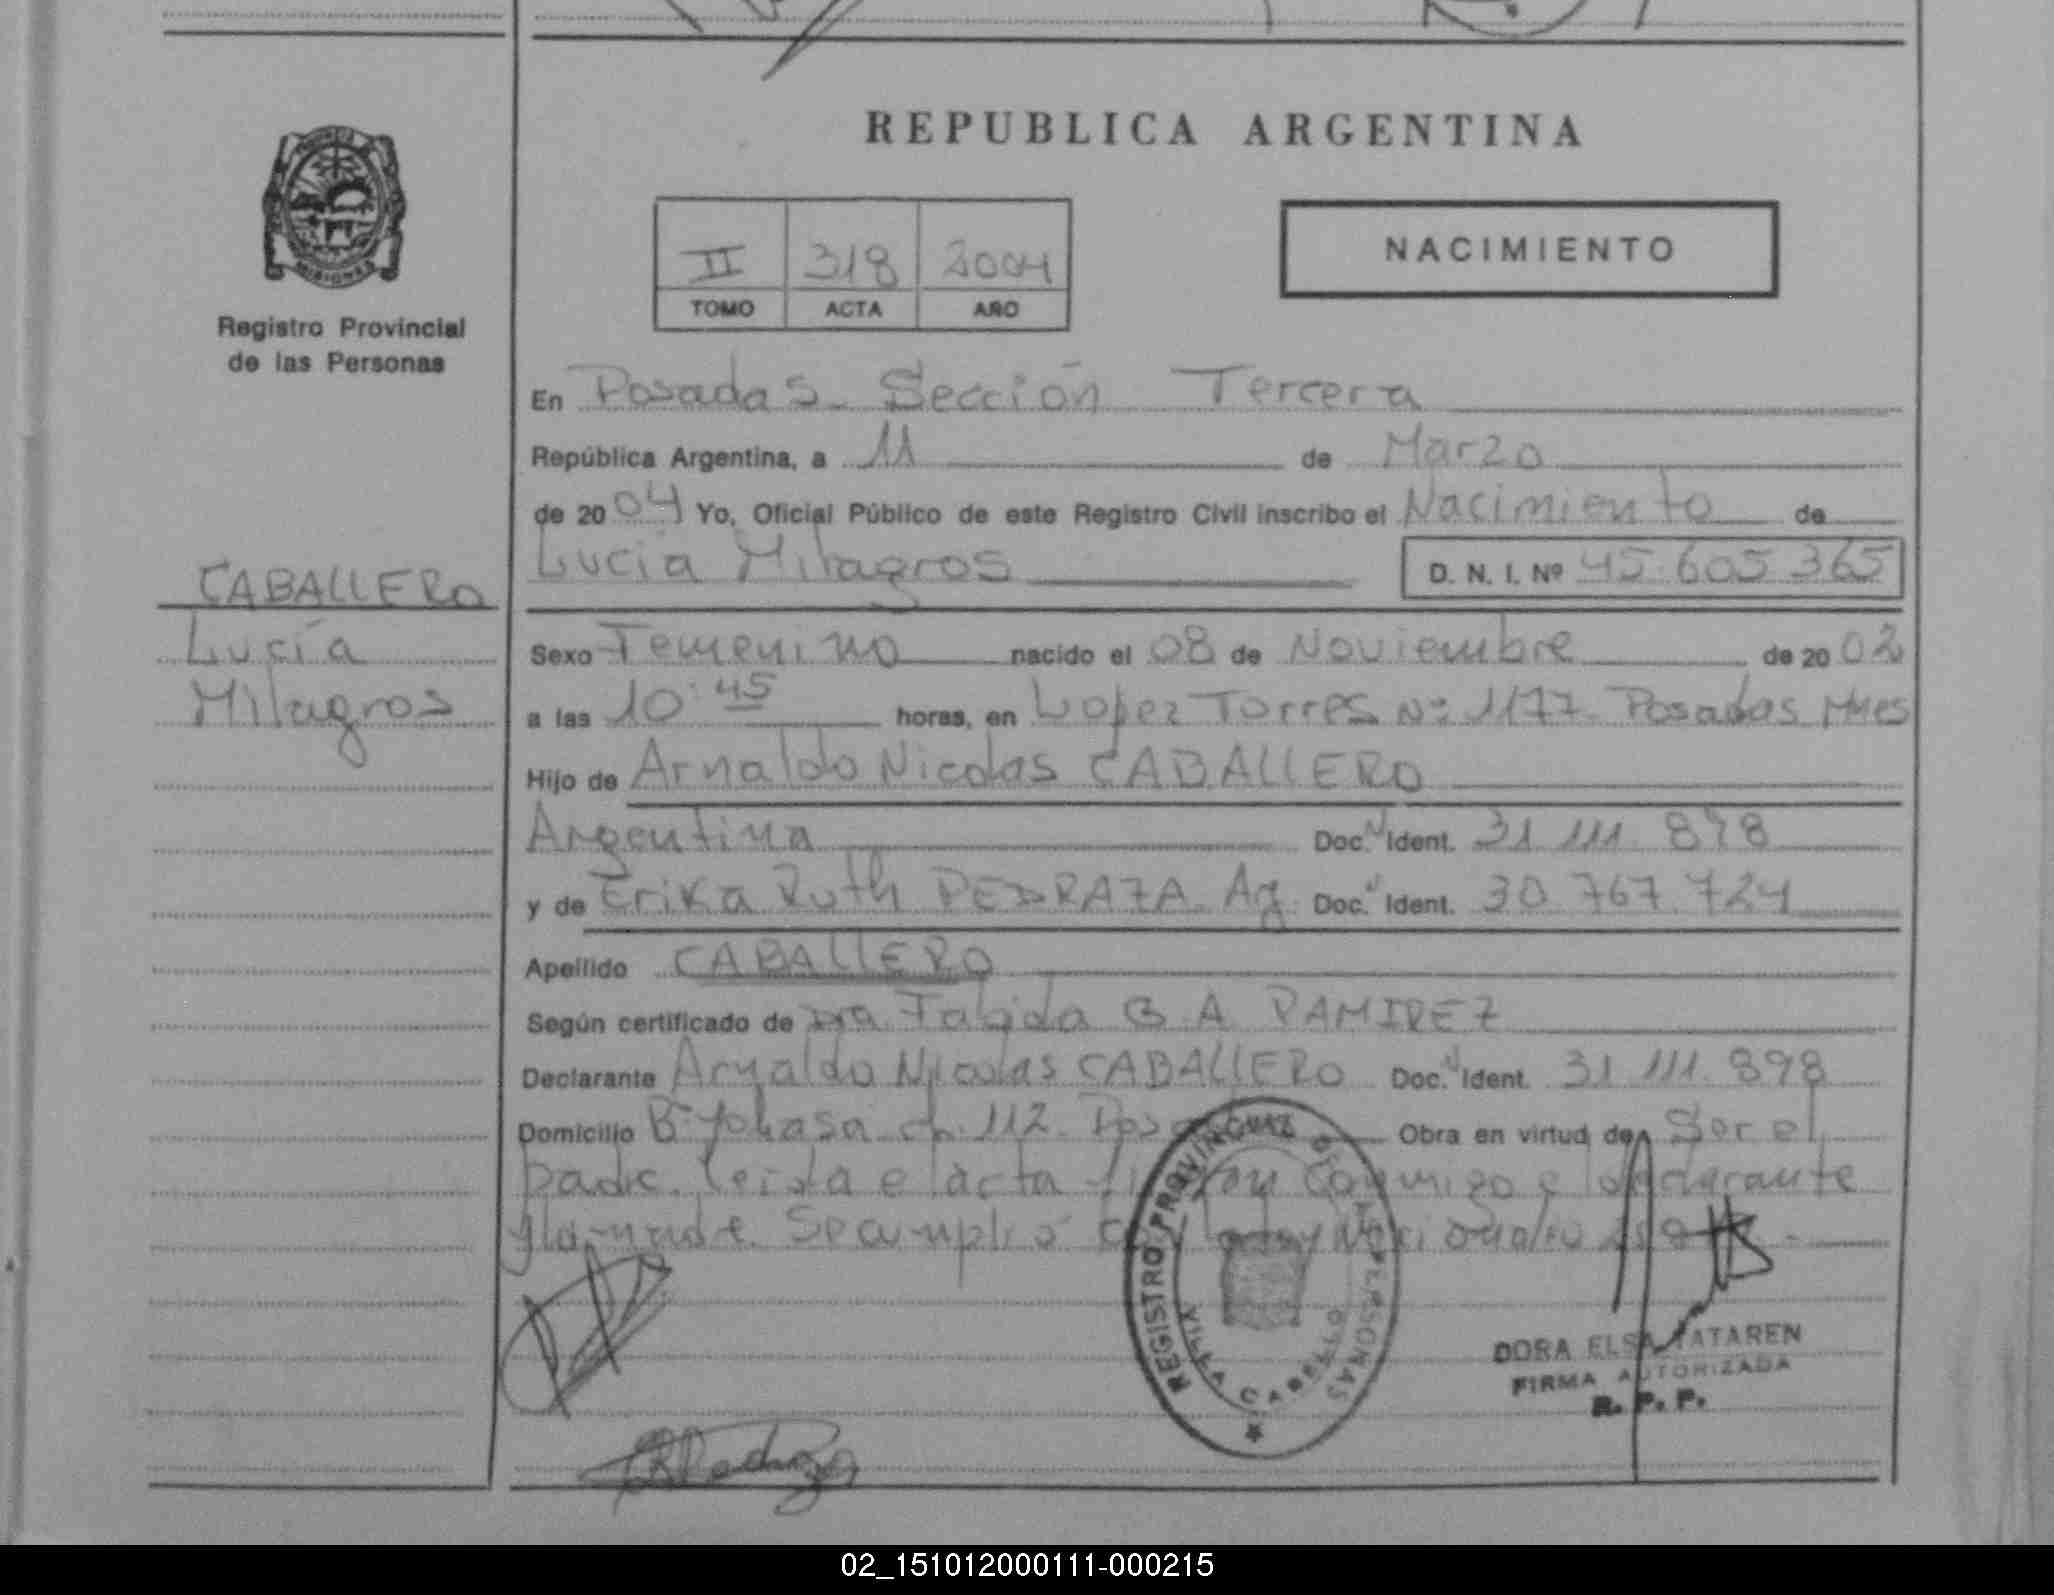 REPUBLICA ARGENTINA
II 318 2004
TOMO ACTA AÑO
NACIMIENTO
MISIONES
Registro Provincial
de las Personas
CABALLERO
Lucía
Milagros
En Posadas. Sección Tercera
República Argentina, a 11 de Marzo
de 20 04 Yo, Oficial Público de este Registro Civil inscribo el Nacimiento de
Lucía Milagros D. N. I. Nº 45.605.365
Sexo Femenino nacido el 08 de Noviembre de 20 02
a las 10:45 horas, en Lopez Torres Nº 1177. Posadas Mnes
Hijo de Arnaldo Nicolas CABALLERO
Argentina Doc. N Ident. 31.111.898
y de Erika Ruth PEDRAZA. Ag Doc. N Ident. 30.767.724
Apellido CABALLERO
Según certificado de Dra Fabida B. A. RAMIREZ
Declarante Arnaldo Nicolas CABALLERO Doc. N Ident. 31.111.898
Domicilio Bº Yohasa ch. 112. Obra en virtud de Ser el
padre. leida el acta conmigo el declarante
Se cumplió
REGISTRO PROVINCIAL DE LAS PERSONAS
VILLA CABELLO
DORA ELSA TATAREN
FIRMA AUTORIZADA
R. P. P.
02_151012000111-000215